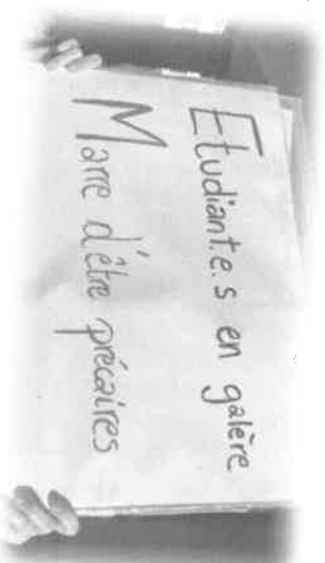 Etudiant.e.s en galère
Marre d'être précaires